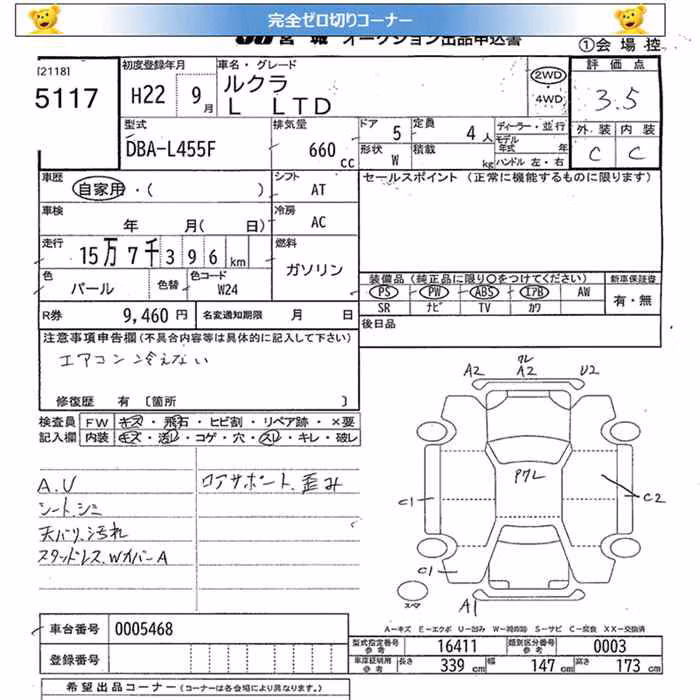 完全ゼロ切りコーナー
JU宮城 オークション出品申込書
①会場控
[2118]
5117
初度登録年月
H22 9月
車名・グレード
ルクラ
L LTD
2WD
・
4WD
評価点
3.5
外装 内装
C C
型式
DBA-L455F
排気量
660 cc
ドア 5
定員 4人
形状 W
積載 kg
ディーラー・並行
モデル年式 年
ハンドル 左・右
車歴
自家用・( )
シフト
AT
セールスポイント (正常に機能するものに限ります)
車検
年 月( 日)
冷房
AC
走行
15万7千396km
燃料
ガソリン
色
パール
色替
色コード
W24
装備品(純正品に限り〇をつけてください)
新車保証書
PS PW ABS エアB AW
SR ナビ TV カワ
有・無
R券 9,460円
名変通知期限 月 日
後日品
注意事項申告欄(不具合内容等は具体的に記入して下さい)
エアコン冷えない
修復歴 有 [箇所 ]
検査員記入欄
FW キズ・飛石・ヒビ割・リペア跡・×要
内装 キズ・汚レ・コゲ・穴・スレ・キレ・破レ
A.U
シート.シミ
天バリ.汚れ
スタッドレス.WカバーA
ロアサポート.歪み
A2 クレ A2 U2
Pクレ
C1
C2
C1
A1
スペア
A-キズ E-エクボ U-凹ミ W-補修跡 S-サビ C-腐食 XX-交換済
車台番号 0005468
登録番号
型式指定番号 参考 16411
類別区分番号 参考 0003
車庫証明用 参考 長さ 339cm 幅 147cm 高さ 173cm
希望出品コーナー(コーナーは各会場により異なります。)